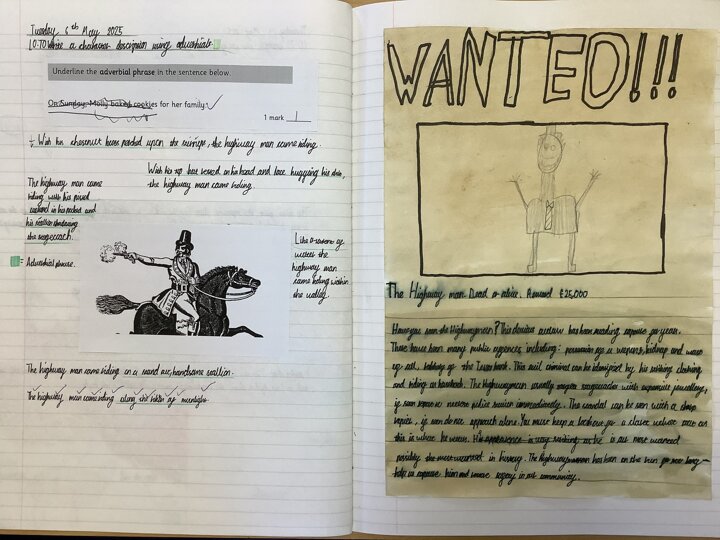 Tuesday 6th May 2025
LO: TO Write a character description using adverbials
Underline the adverbial phrase in the sentence below.
On Sunday, Molly baked cookies for her family.
1 mark 1
With his chestnut boots perched upon the stirrups, the highway man came riding.
With his top hat rested on his head and lace hugging his chin,
the highway man came riding.
The highway man came
riding with his prized
in his pocket and
his
the stagecoach.
= Adverbial phrase.
Like a
the
highway man
came riding within
the valley.
The highway man came riding on a handsome stallion.
The highway man came riding along the ribbon of moonlight.
WANTED!!!
The Highway man Dead or alive. Reward £25,000
Have you seen the Highwayman? This devious outlaw has been evading for years.
There have been many public including: possession of a weapon, kidnap and
robbing of the bank. This evil criminal can be identified by his striking clothing
and riding on horseback. The Highwayman usually stagecoaches with expensive jewellery,
if seen report a police station immediately. The can be seen with a sharp
rapier, if seen do not approach alone. You must keep a lookout for a claret velvet coat as
this is what he wears. His appearance is very striking as he is our most wanted
possibly the most wanted in history. The Highwayman has been on the run for too long –
help us capture him and safety in our community.